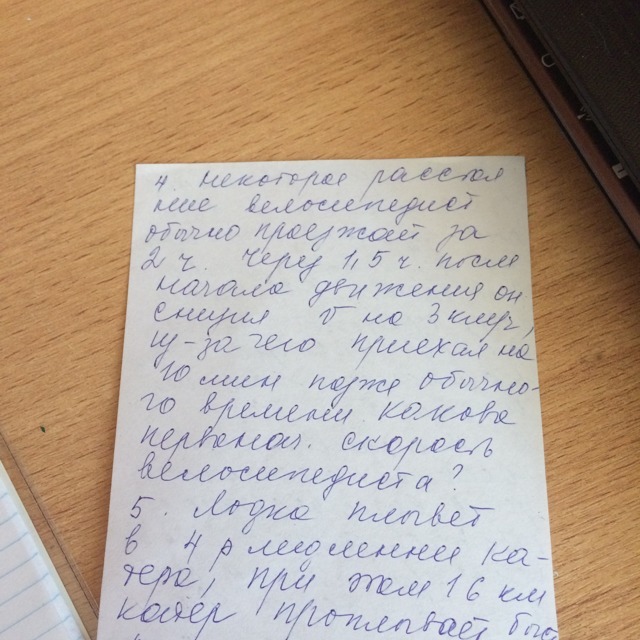 4. Некоторое расстоя
ние велосипедист
обычно проезжает за
2 ч. Через 1,5 ч. после
начала движения он
снизил v на 3 км/ч,
из-за чего приехал на
10 мин позже обычно-
го времени. Какова
первонач. скорость
велосипедиста?
5. Лодка плывет
в 4 р медленнее ка-
тера, при этом 16 км
катер проплывает